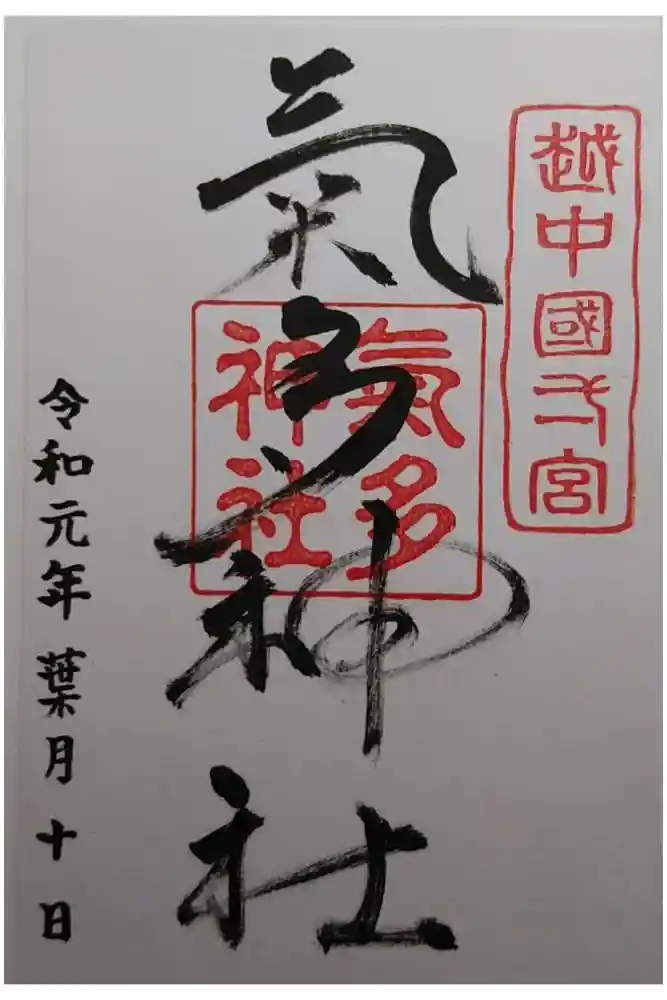 越中國一宮
氣多神社
氣多
神社
令和元年 葉月 十日